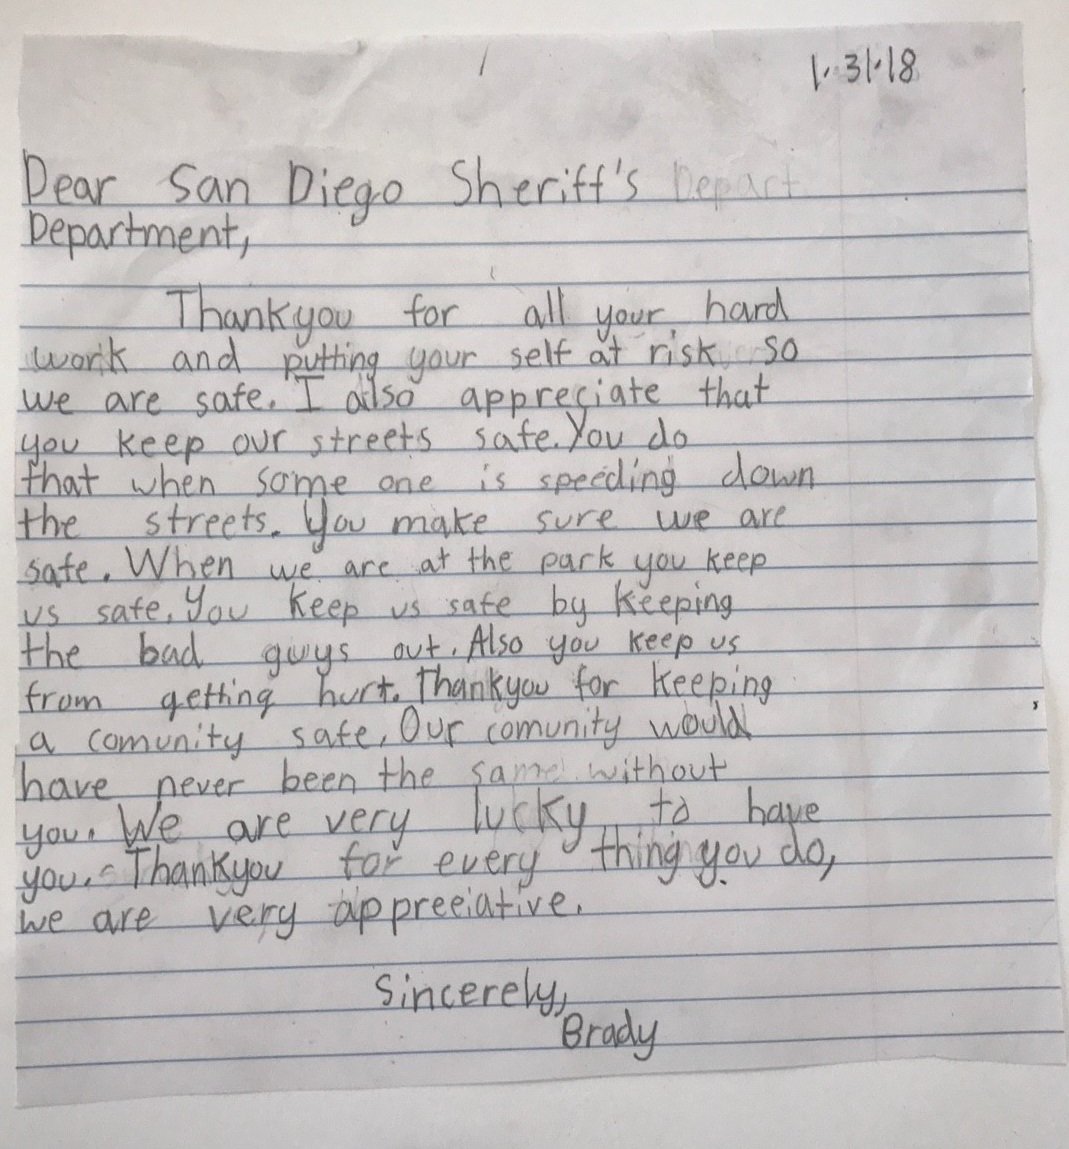 1.31.18
Dear San Diego Sheriff's Depart
Department,
Thankyou for all your hard
work and putting your self at risk so
we are safe. I also appreciate that
you keep our streets safe. You do
that when some one is speeding down
the streets. You make sure we are
safe. When we are at the park you keep
us safe. You keep us safe by keeping
the bad guys out. Also you keep us
from getting hurt. Thankyou for keeping
a comunity safe. Our comunity would
have never been the same without
you. We are very lucky to have
you. Thankyou for every thing you do,
we are very appreeiative.
Sincerely,
Brady